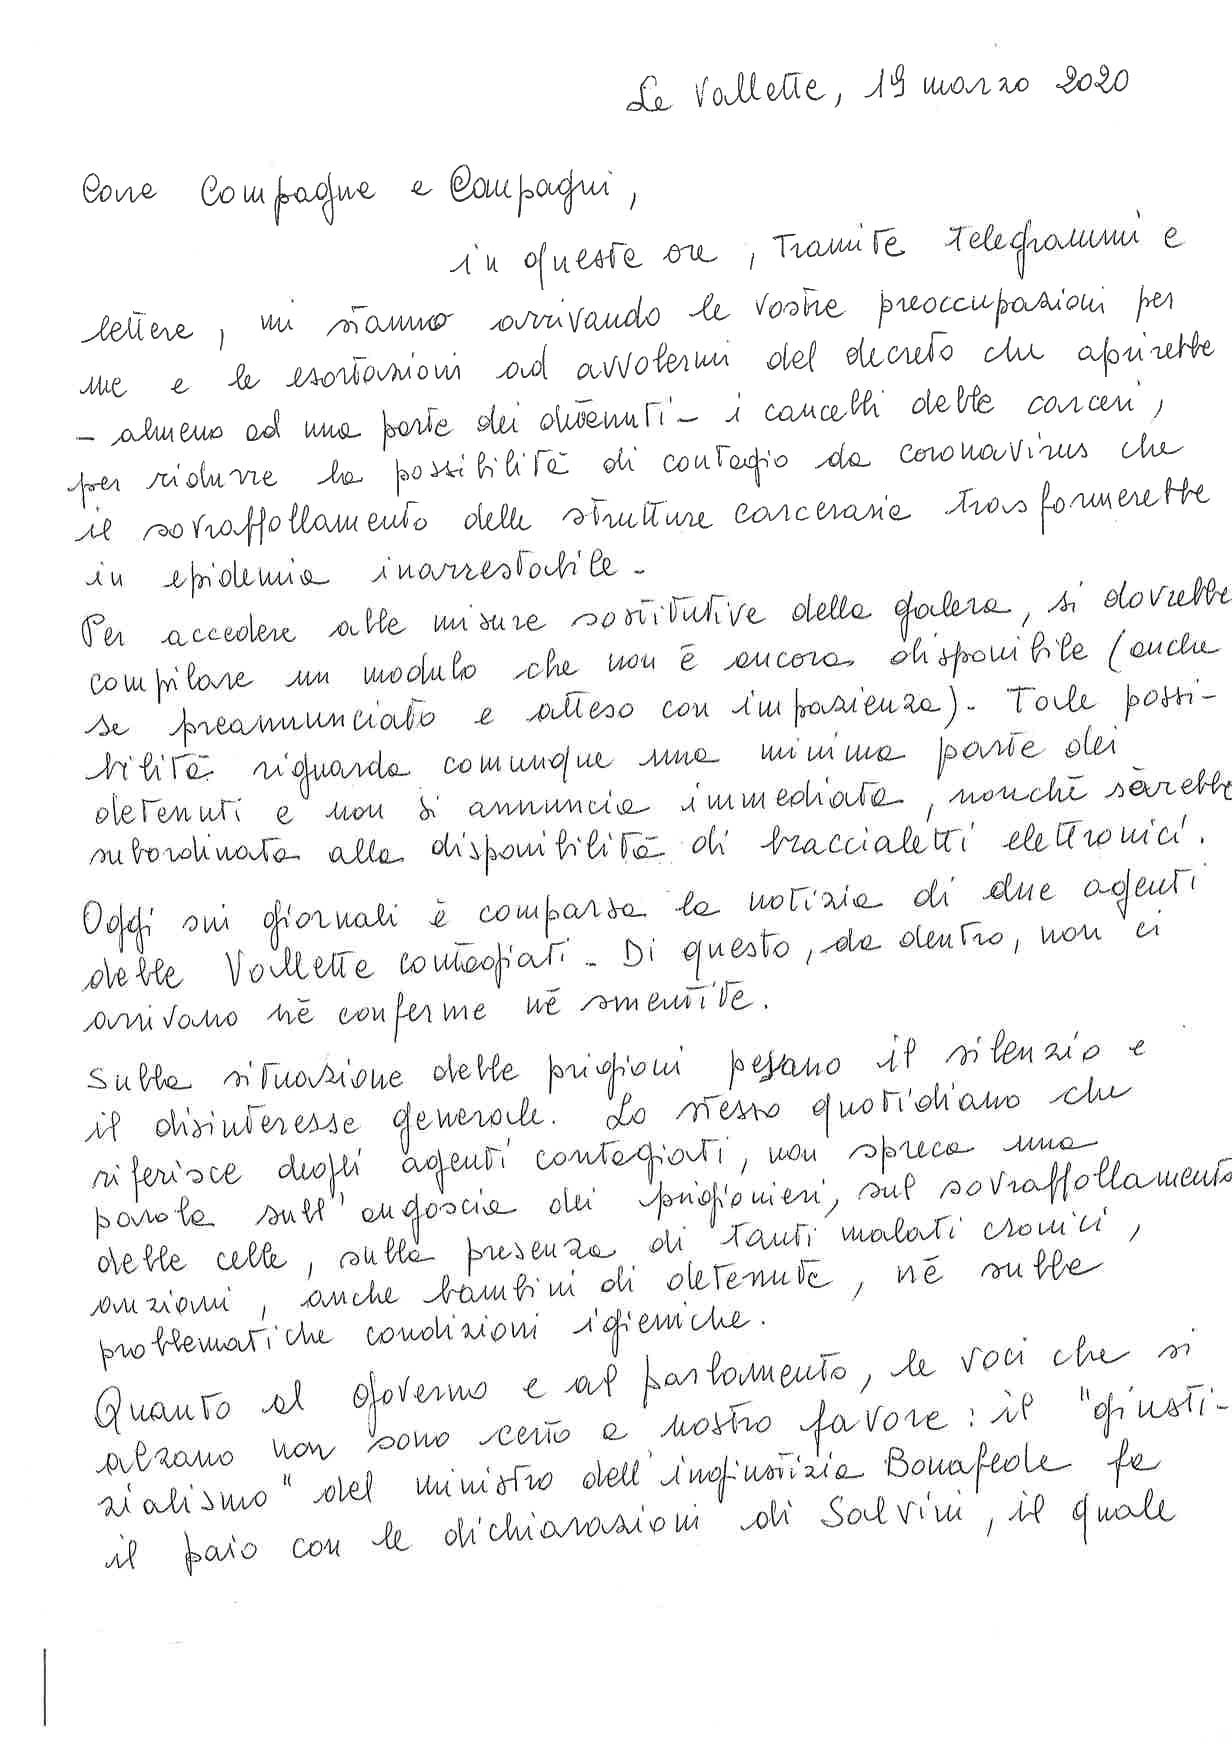 Le Vallette, 19 marzo 2020
Care Compagne e Compagni,
in queste ore, tramite telegrammi e
lettere, mi stanno arrivando le vostre preoccupazioni per
me e le esortazioni ad avvalermi del decreto che aprirebbe
- almeno ad una parte dei detenuti - i cancelli delle carceri,
per ridurre la possibilità di contagio da coronavirus che
il sovraffollamento delle strutture carcerarie trasformerebbe
in epidemia inarrestabile.
Per accedere alle misure sostitutive della galera, si dovrebbe
compilare un modulo che non è ancora disponibile (anche
se preannunciato e atteso con impazienza). Tale possi-
bilità riguarda comunque una minima parte dei
detenuti e non si annuncia immediata, nonché sarebbe
subordinata alla disponibilità di braccialetti elettronici.
Oggi sui giornali è comparsa la notizia di due agenti
delle Vallette contagiati. Di questo, da dentro, non ci
arrivano né conferme né smentite.
Sulla situazione delle prigioni pesano il silenzio e
il disinteresse generale. Lo stesso quotidiano che
riferisce degli agenti contagiati, non spreca una
parola sull'angoscia dei prigionieri, sul sovraffollamento
delle celle, sulla presenza di tanti malati cronici,
anziani, anche bambini di detenute, né sulle
problematiche condizioni igieniche.
Quanto al governo e al parlamento, le voci che si
alzano non sono certo a nostro favore: il "giusti-
zialismo" del ministro dell'ingiustizia Bonafede fa
il paio con le dichiarazioni di Salvini, il quale